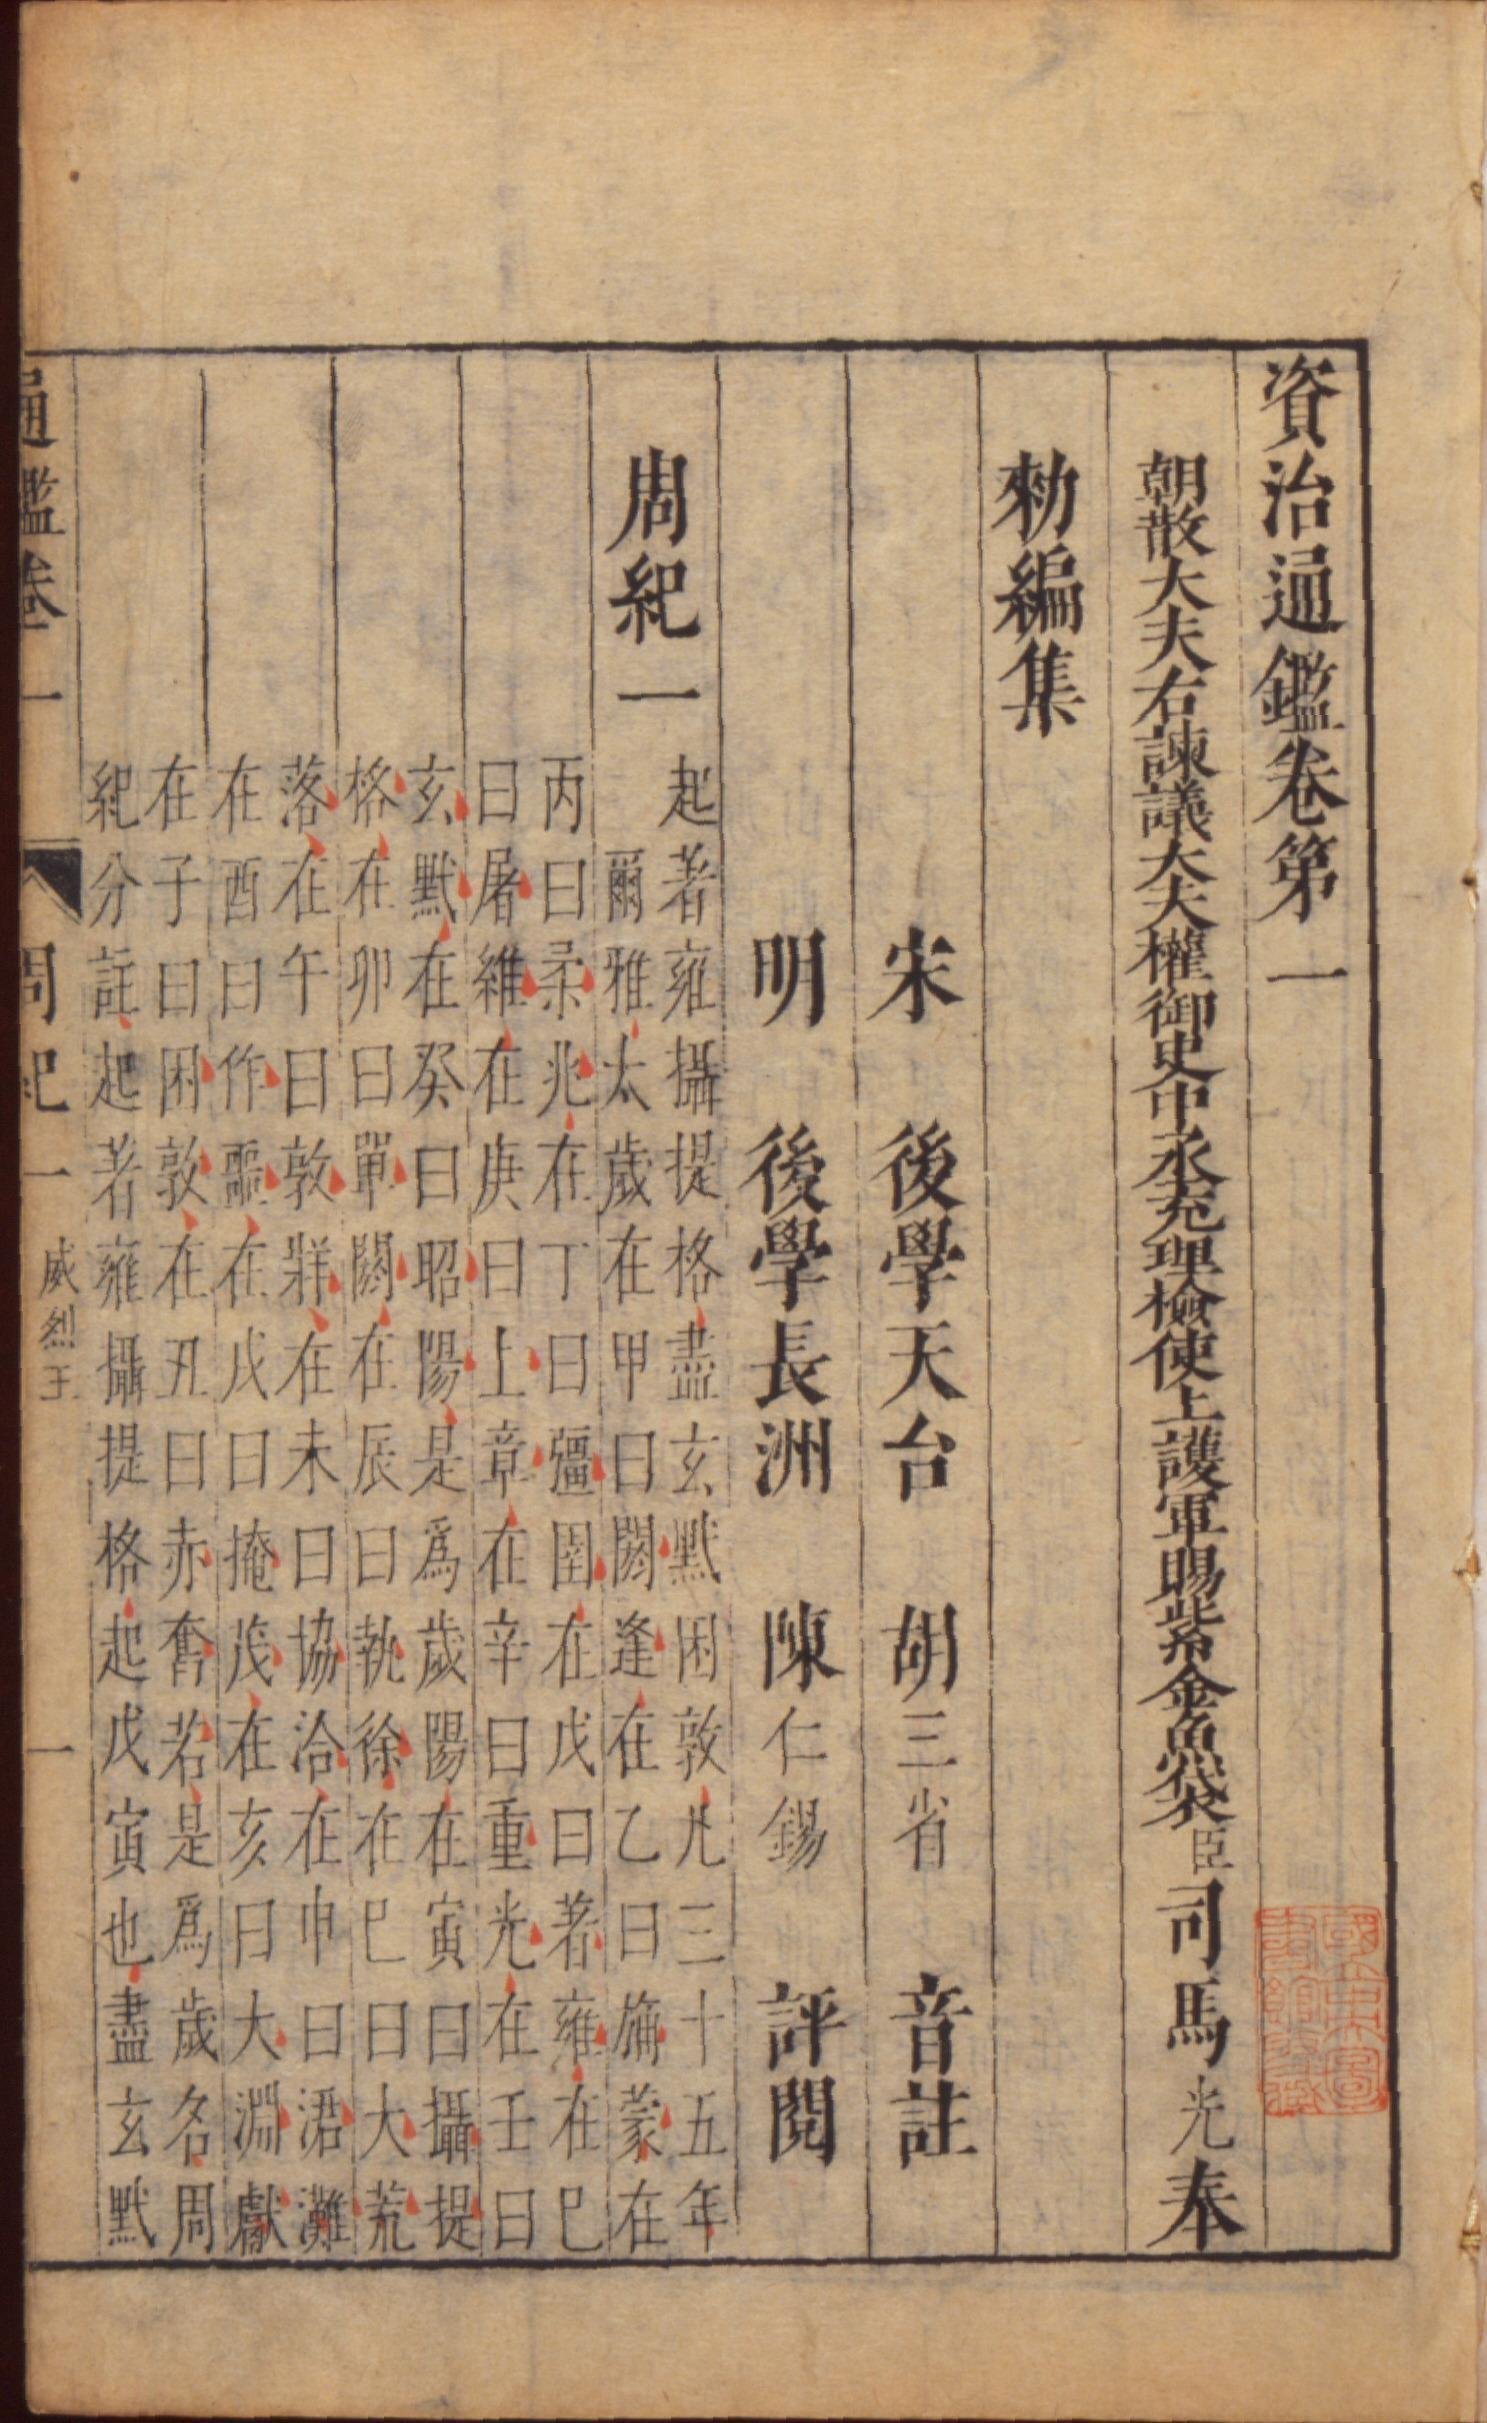 資治通鑑卷第一
朝散大夫右諫議大夫權御史中丞充理檢使上護軍賜紫金魚袋臣司馬光奉
勑編集
宋 後學天台 胡三省 音註
明 後學長洲 陳仁錫 評閱
周紀一
起著雍攝提格盡玄黓困敦凡三十五年
爾雅太歲在甲曰閼逢在乙曰旃蒙在
丙曰柔兆在丁曰彊圉在戊曰著雍在巳
曰屠維在庚曰上章在辛曰重光在壬曰
玄黓在癸曰昭陽是爲歲陽在寅曰攝提
格在卯曰單閼在辰曰執徐在巳曰大荒
落在午曰敦牂在未曰協洽在申曰涒灘
在酉曰作噩在戌曰掩茂在亥曰大淵獻
在子曰困敦在丑曰赤奮若是爲歲名周
紀分註起著雍攝提格起戊寅也盡玄黓
通鑑卷一 周紀一 威烈王 一